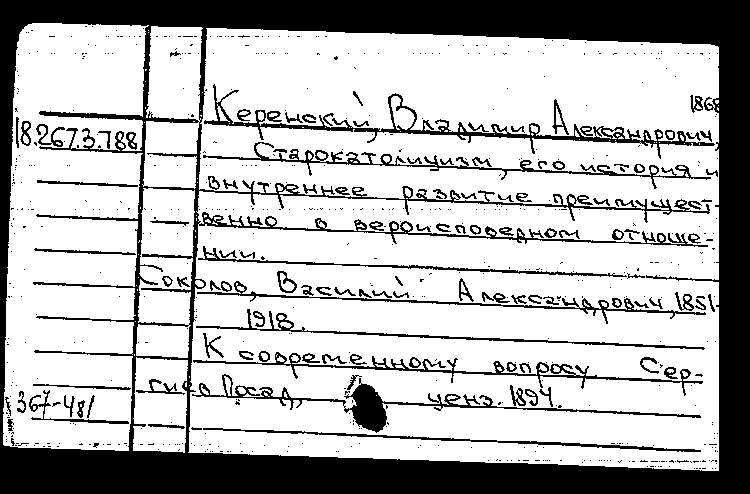 1868
Керенский, Владимир Александрович,
18.267.3.788
Старокатолицизм, его история и
внутреннее развитие преимущест-
венно в вероисповедном отноше-
нии.
Соколов, Василий Александрович, 1851-
1918.
К современному вопросу Сер-
гиев Посад,
ценз. 1894.
367-48/